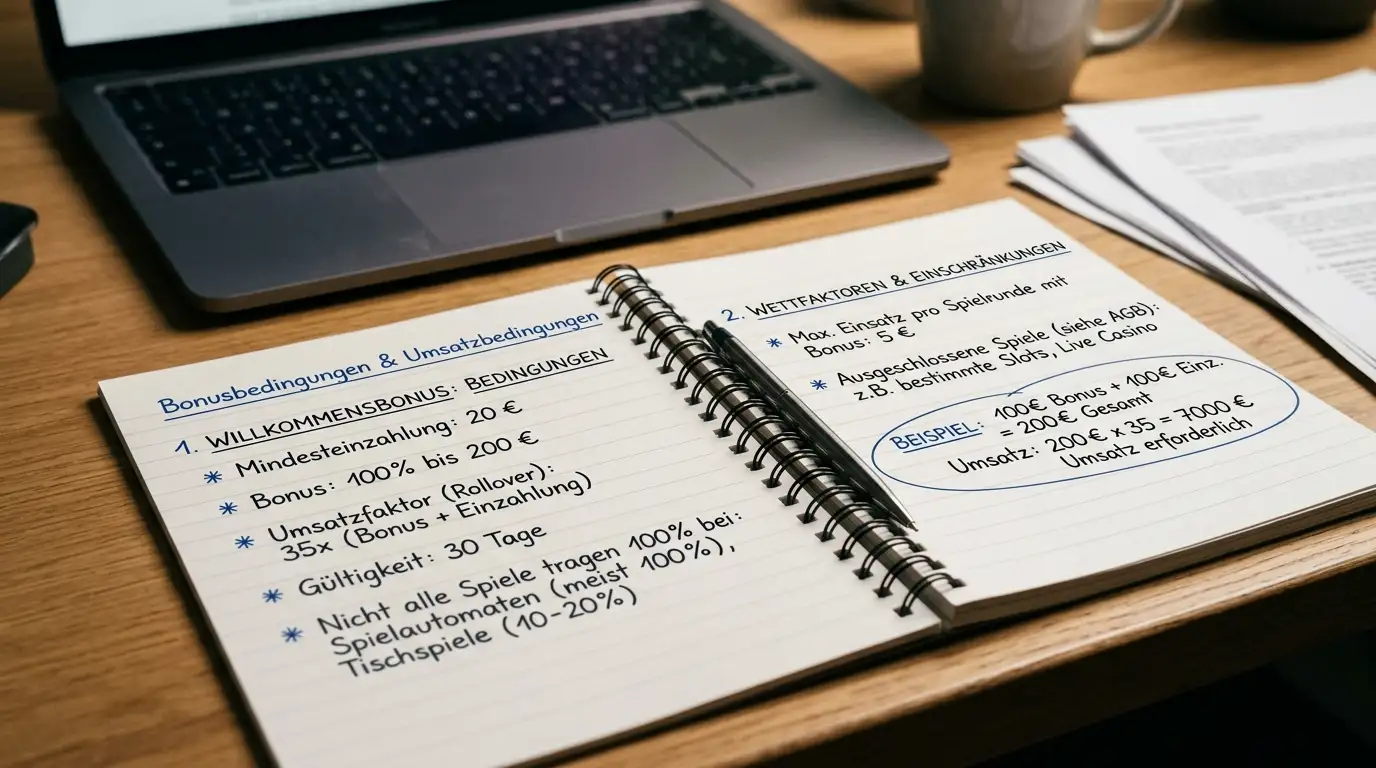 Bonusbedingungen & Umsatzbedingungen
1. WILLKOMMENSBONUS: BEDINGUNGEN
* Mindesteinzahlung: 20 €
* Bonus: 100% bis 200 €
* Umsatzfaktor (Rollover):
35x (Bonus + Einzahlung)
* Gültigkeit: 30 Tage
* Nicht alle Spiele tragen 100% bei:
Spielautomaten (meist 100%),
Tischspiele (10-20%)
2. WETTFAKTOREN & EINSCHRÄNKUNGEN
* Max. Einsatz pro Spielrunde mit
Bonus: 5 €
* Ausgeschlossene Spiele (siehe AGB):
z.B. bestimmte Slots, Live Casino
BEISPIEL: 100€ Bonus + 100€ Einz.
= 200€ Gesamt
Umsatz: 200€ x 35 = 7000 €
Umsatz erforderlich